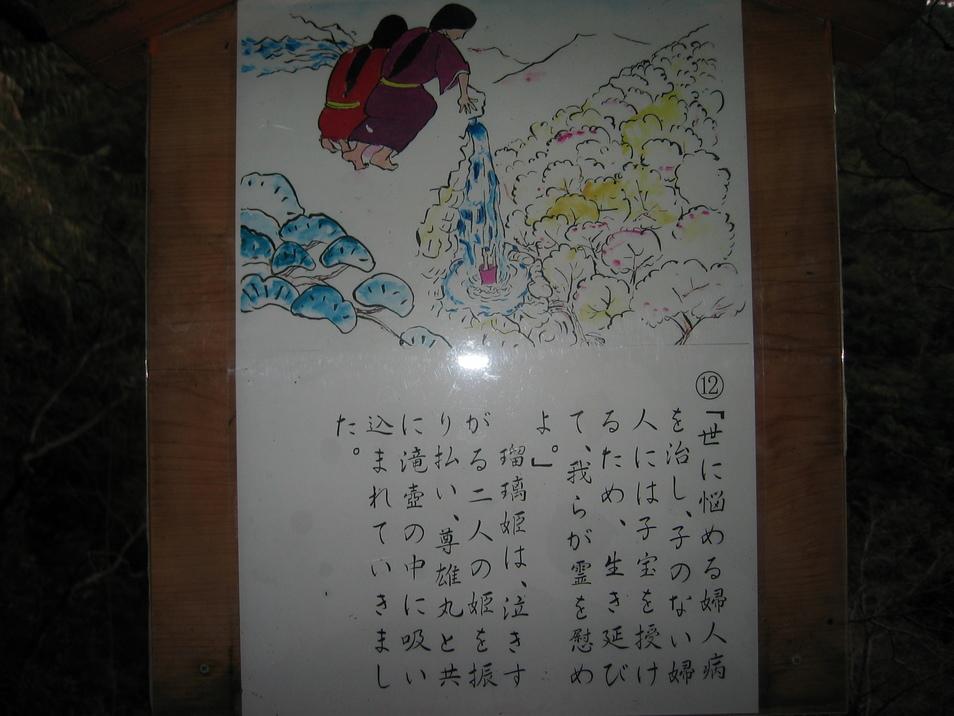 ⑫
「世に悩める婦人病
を治し、子のない婦
人には子宝を授け
るため、生き延び
て、我らが霊を慰め
よ。」
瑠璃姫は、泣きす
がる二人の姫を振
り払い、尊雄丸と共
に滝壺の中に吸い
込まれていきまし
た。